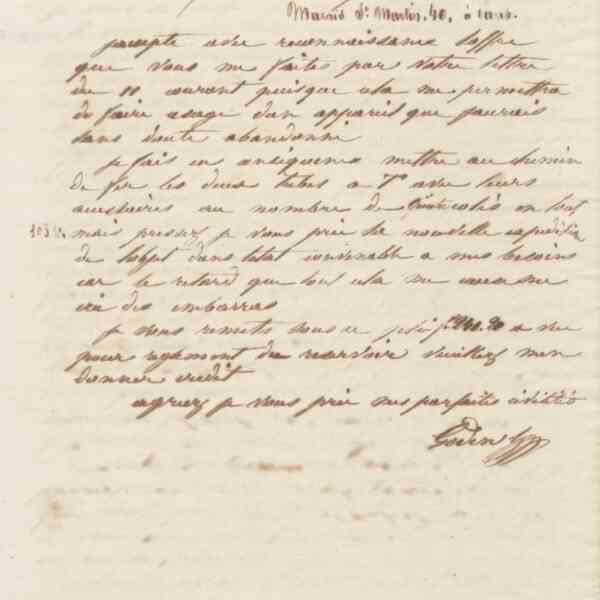 Marais St Martin, 40, à Paris.
j'accepte avec reconnaissance l'offre
que vous me faites par votre lettre
du 10 courant puisque cela me permettra
de faire usage d'un appareil que j'aurais
sans doute abandonné
je fais en conséquence mettre au chemin
de fer les deux tubes a 7° avec leurs
accessoires au nombre de colis en tout
103 k. mais pressez je vous prie la nouvelle expédition
de l'objet dans l'état convenable a mes besoins
car le retard que tout cela me cause me
crée des embarras
je vous remets sous ce pli a vue
pour règlement du réservoir veuillez m'en
donner crédit
agréez je vous prie mes parfaites civilités
Godin